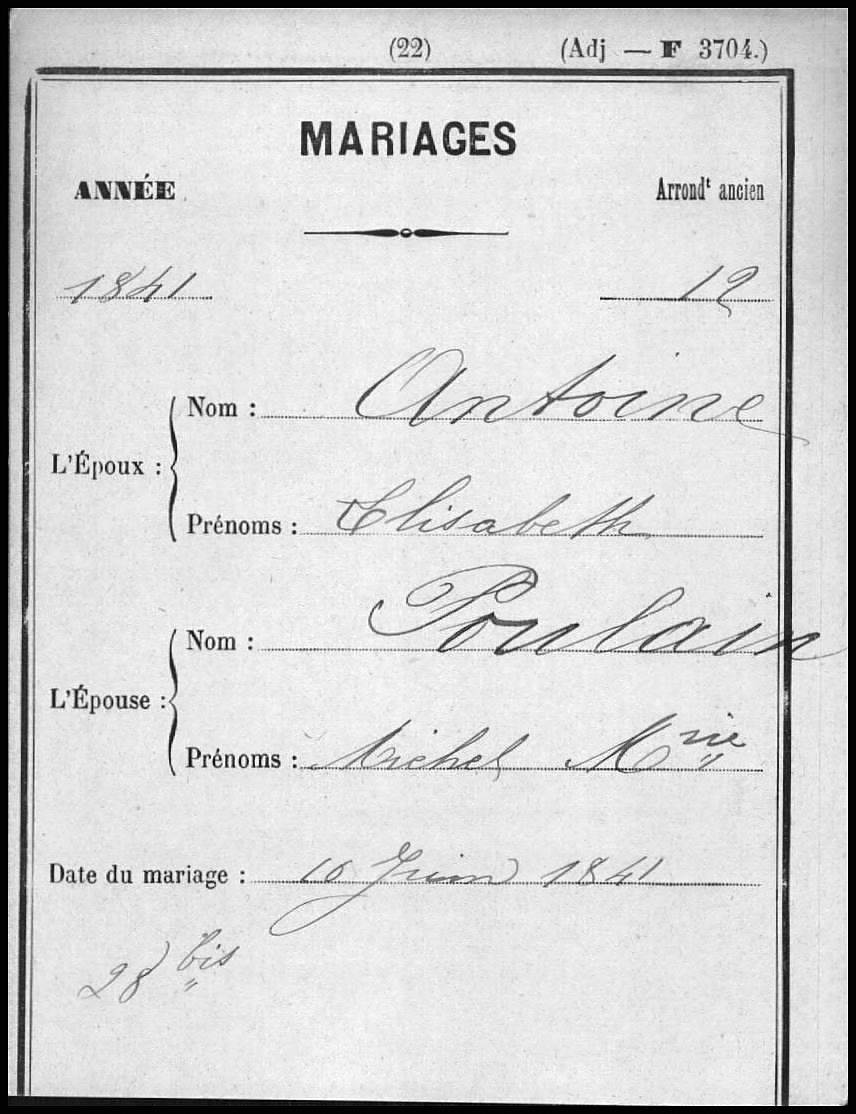 (22) (Adj — F 3704.)
MARIAGES
ANNÉE Arrondt ancien
1841 12
Nom : Antoine
L'Époux :
Prénoms : Elisabeth
Nom : Poulain
L'Épouse :
Prénoms : Michel Mrie
Date du mariage : 10 Juin 1841
28 bis